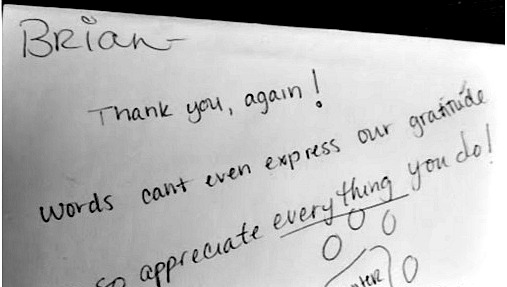 Brian-
Thank you, again!
Words cant even express our gratitude
so appreciate everything you do!